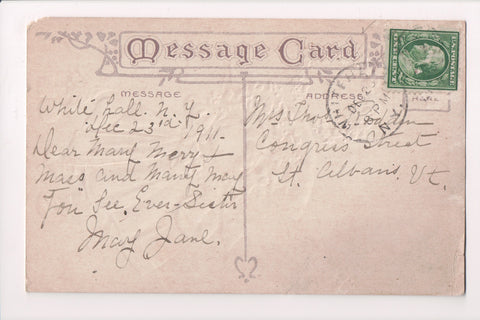 Message Card
MESSAGE
ADDRESS
White Hall. N.Y.
Dec 23rd, 1911.
Dear Mary Merry x
mass and Many May
You See. Ever-Sister
Mary Jane.
Mrs Thos
Congress Street
St. Albans. Vt.
HERE